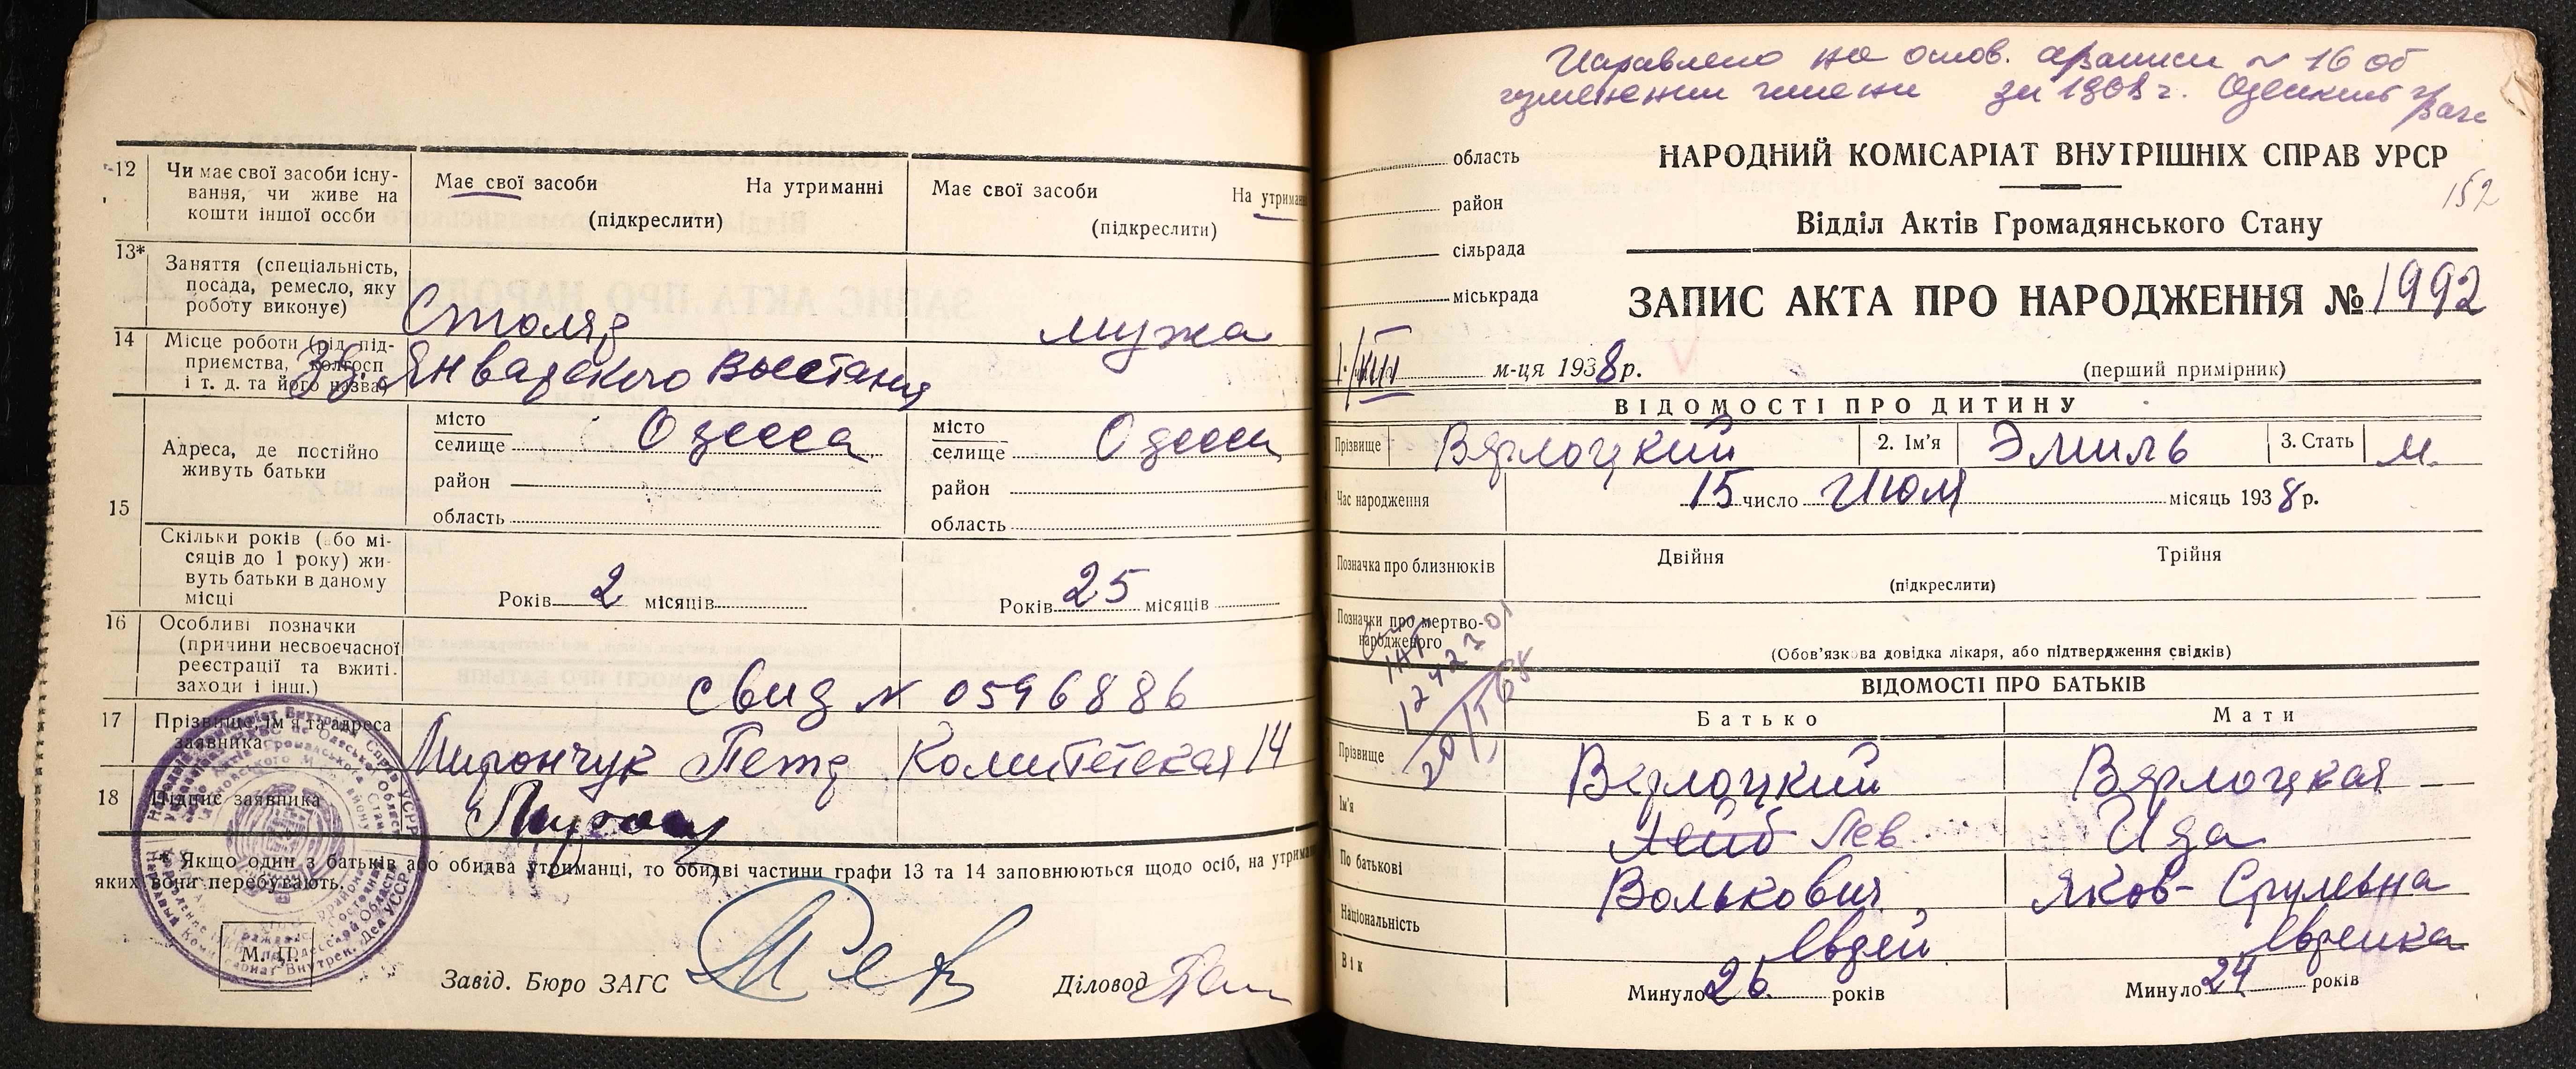 12
Чи має свої засоби існу-
вання, чи живе на
кошти іншої особи
Має свої засоби На утриманні
(підкреслити)
Має свої засоби На утриман
(підкреслити)
13*
Заняття (спеціальність,
посада, ремесло, яку
роботу виконує)
Столяр
мужа
14
Місце роботи (рід під-
приємства, колгосп
і т. д. та його назва)
Зд. Январского Восстания
15
Адреса, де постійно
живуть батьки
місто
селище Одесса
район
область
місто
селище Одесса
район
область
Скільки років (або мі-
сяців до 1 року) жи-
вуть батьки в даному
місці
Років 2 місяців
Років 25 місяців
16
Особливі позначки
(причини несвоєчасної
реєстрації та вжиті
заходи і інш.)
свид № 0596886
17
Прізвище, ім'я та адреса
заявника
Мирончук Петр Комитетская 14
18
Підпис заявника
* Якщо один з батьків або обидва утриманці, то обидві частини графи 13 та 14 заповнюються щодо осіб, на утриман
яких вони перебувають.
М. П.
Завід. Бюро ЗАГС
Діловод
Исправлено на основ. а/записи № 16 об
изменении имени за 1968 г. Одесским
152
область
район
сільрада
міськрада
НАРОДНИЙ КОМІСАРІАТ ВНУТРІШНІХ СПРАВ УРСР
Відділ Актів Громадянського Стану
ЗАПИС АКТА ПРО НАРОДЖЕННЯ № 1992
1/VIII м-ця 1938 р.
(перший примірник)
ВІДОМОСТІ ПРО ДИТИНУ
Прізвище Вярлоцкий 2. Ім'я Эмиль 3. Стать м.
Час народження 15 число Июля місяць 1938 р.
Позначка про близнюків Двійня Трійня
(підкреслити)
Позначки про мертво-
народженого
(Обов'язкова довідка лікаря, або підтвердження свідків)
ВІДОМОСТІ ПРО БАТЬКІВ
Батько Мати
Прізвище Вярлоцкий Вярлоцкая
Ім'я Лейб Лев Ида
По батькові Волькович Яков-Срулевна
Національність Еврей Еврейка
Вік Минуло 26 років Минуло 24 років